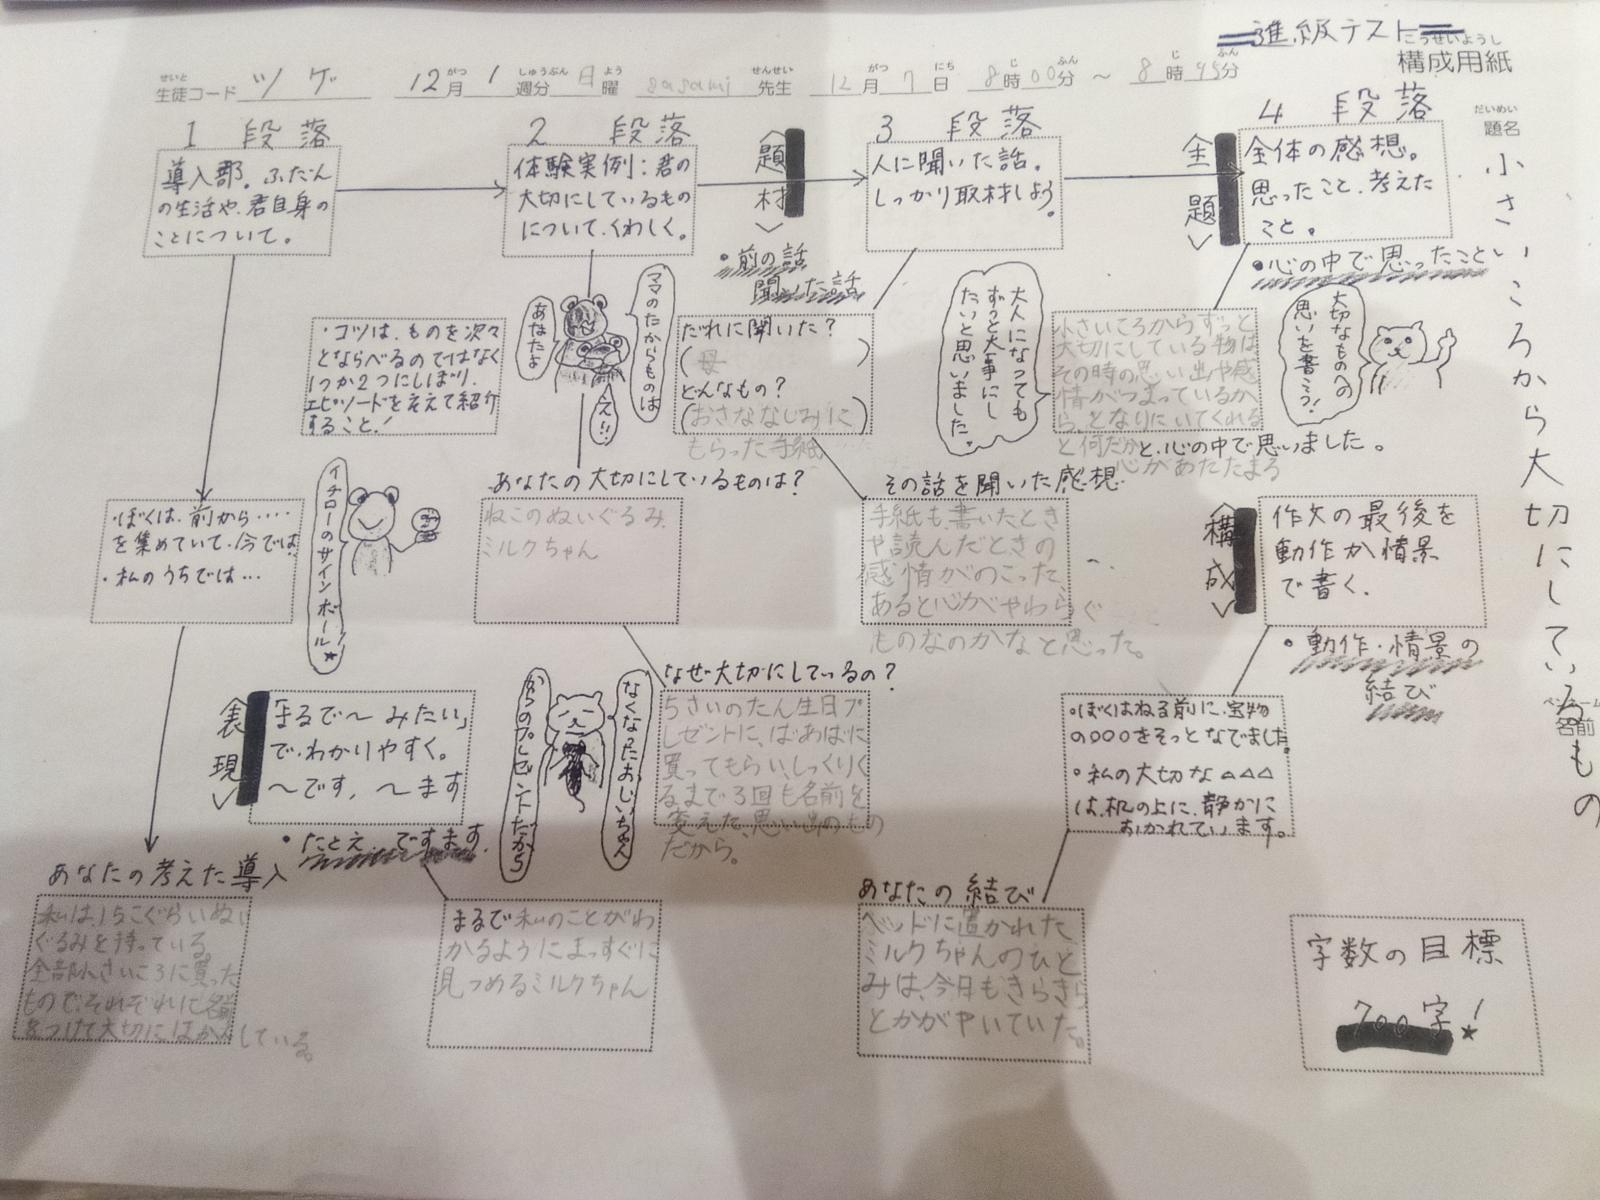 進級テスト
構成用紙
こうせいようし
生徒コード ツゲ 12月1週分 日曜 sasami 先生 12月7日 8時00分 ~ 8時45分
せいと がつ しゅうぶん よう せんせい がつ にち じ ふん じ ふん
題名
だいめい
小さいころから大切にしているもの
名前
1 段落
導入郡。ふだん
の生活や、君自身の
ことについて。
・ぼくは、前から‥‥
を集めていて、今では
・私のうちでは…
イチローのサインボール!★
あなたの考えた導入
私は、15こぐらいぬい
ぐるみを持っている。
全部小さいころに買った
もので、それぞれに名前
をつけて大切にほかんしている。
2 段落
体験実例:君の
大切にしているもの
について、くわしく。
・コツは、ものを次々
とならべるのではなく
1つか2つにしぼり、
エピソードをそえて紹介
すること!
ママのたからものは
あなたよ
え!!
あなたの大切にしているものは?
ねこのぬいぐるみ
ミルクちゃん
なぜ大切にしているの?
5さいのたん生日プ
レゼントに、ばあばに
買ってもらい、しっくりく
るまで3回も名前を
変えた、思い出のもの
だから。
なくなったおじいちゃん
からのプレゼントだから
〈表現〉
「まるで〜みたい」
で、わかりやすく。
〜です、〜ます
・たとえ ですます
まるで私のことがわ
かるようにまっすぐに
見つめるミルクちゃん
〈題材〉
・前の話
聞いた話
3 段落
人に聞いた話。
しっかり取材しよう。
だれに聞いた?
(母)
どんなもの?
(おさななじみに
もらった手紙
その話を聞いた感想
手紙も、書いたとき
や読んだときの
感情がのこった、
あると心がやわらぐ
ものなのかなと思った。
〈主題〉
4 段落
全体の感想。
思ったこと、考えた
こと。
・心の中で思ったこと
大切なものへの
思いを書こう!
大人になっても
ずっと大事にし
たいと思いました。
小さいころからずっと
大切にしている物は
その時の思い出や感
情がつまっているか
ら、となりにいてくれる
と何だかと、心の中で思いました。
心があたたまる
〈構成〉
作文の最後を
動作か情景
で書く。
・動作・情景の
結び
・ぼくはねる前に、宝物
の○○○をそっとなでました。
・私の大切な△△△
は、机の上に、静かに
おかれています。
あなたの結び
ベッドに置かれた
ミルクちゃんのひと
みは、今日もきらきら
とかがやいていた。
字数の目標
700字!★